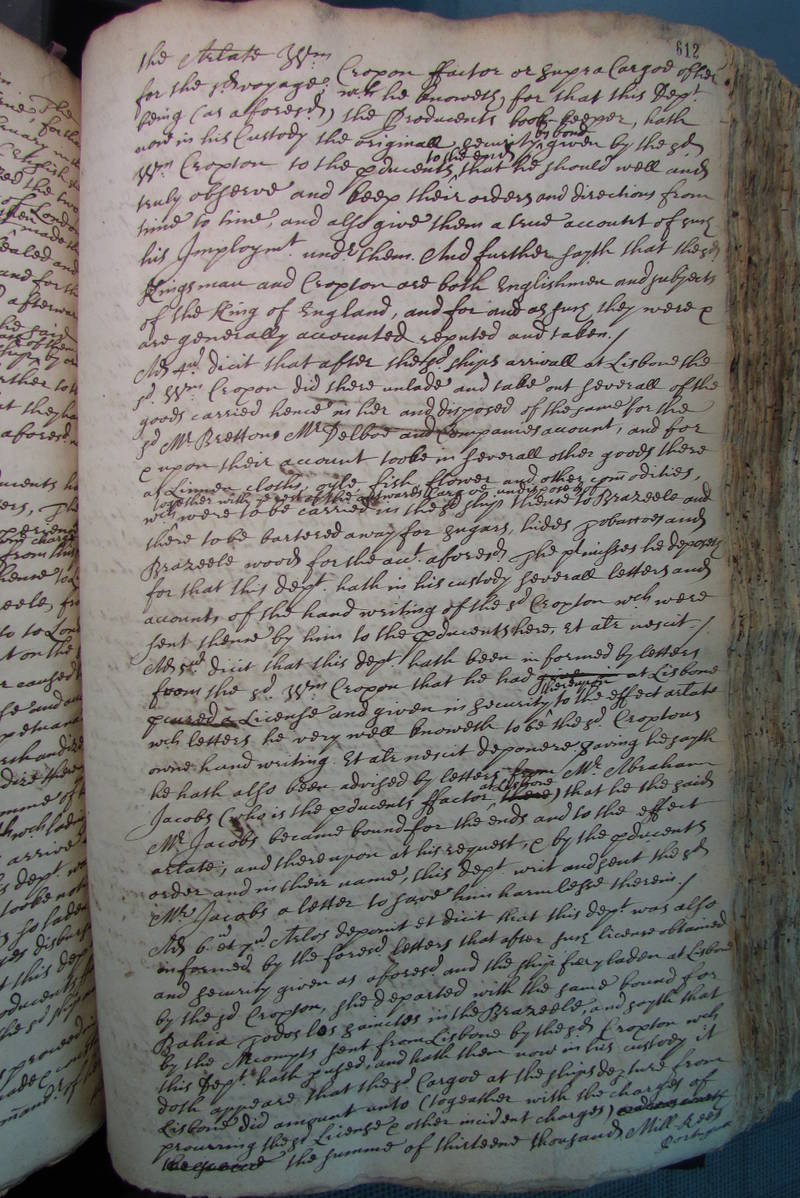 612
the Arlate Wm Cropon ffactor or supra Cargoe of her
for the sd voyage; wch he knoweth, for that this Dept
being (as aforesd) the Producents booke keeper, hath
now in his Custody the originall security by bond given by the sd
Wm Cropton to the pducents to the end that he should well and
truly observe and keep their orders and directions from
time to time, and also give them a true account of such
his Imploymt. under them. And further sayth that the sd
Kingsman and Cropton are both Englishmen and subjects
of the King of England, and for and as such they were &
are generally accounted reputed and taken./
Ad 4um dicit that after the sd ships arrivall at Lisbone the
sd. Wm Cropon did there unlade and take out severall of the
goods carried hence in her and disposed of the same for the
sd Mr Brettons Mr Delboe and Companies account, and for
& upon their account tooke in severall other goods there
as Linnen cloths, oyle, fish, flower and other comodities,
together with the rest of the outwards Cargoe undisposed
wch were to be carried in the sd ship thence to Brazeele and
there to be bartered away for sugars, hides Tobaccoes and
Brazeele wood for the act. aforesd The pmisses he deposeth
for that this dept. hath in his custody severall letters and
accounts of the hand writing of the sd Cropton wch were
sent thence by him to the pducents here, Et alr nescit./
Ad 5um dicit that this dept hath been informed by letters
from the sd. Wm Cropon that he had at Lisbone
pcured a License and given in security therein to the effect arlate
wch letters he very well knoweth to be the sd Croptons
owne hand writing. Et alr nescit deponere, saving he sayth
he hath also been advised by letters from Mr. Abraham
Jacobs (who is the pducents ffactor at Lisbone there) that he the said
Mr Jacobs became bound for the ends and to the effect
arlate; and thereupon at his request, & by the pducents
order and in their name, this dept writ and sent the sd
Mr Jacobs a letter to save him harmlesse therein./
Ad 6um et 7um Arlos deponit et dicit that this dept was also
informed by the foresd letters that after such license obtained
and security given as aforesd and the ship fully laden at Lisbone
by the sd Cropton, she departed with the same bound for
Bahia Todos los Sainctos in the Brazeele, and sayth that
by the Accompts sent from Lisbone by the sd Cropton wch
this Dept hath pused, and hath them now in his custody it
doth appeare that the sd Cargoe at the ships depture from
Lisbone did amount unto (together with the charges of
procurring the sd License & other incident charges)
the summe of thirteene thousand Mill Rees
Portuguese